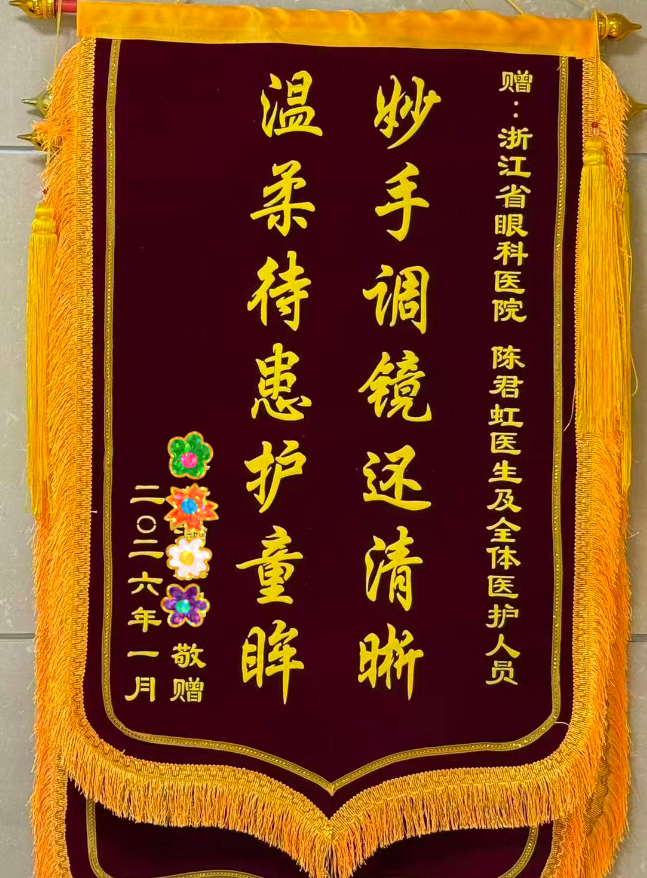 赠：浙江省眼科医院 陈君虹医生及全体医护人员
妙手调镜还清晰
温柔待患护童眸
敬赠
二〇二六年一月